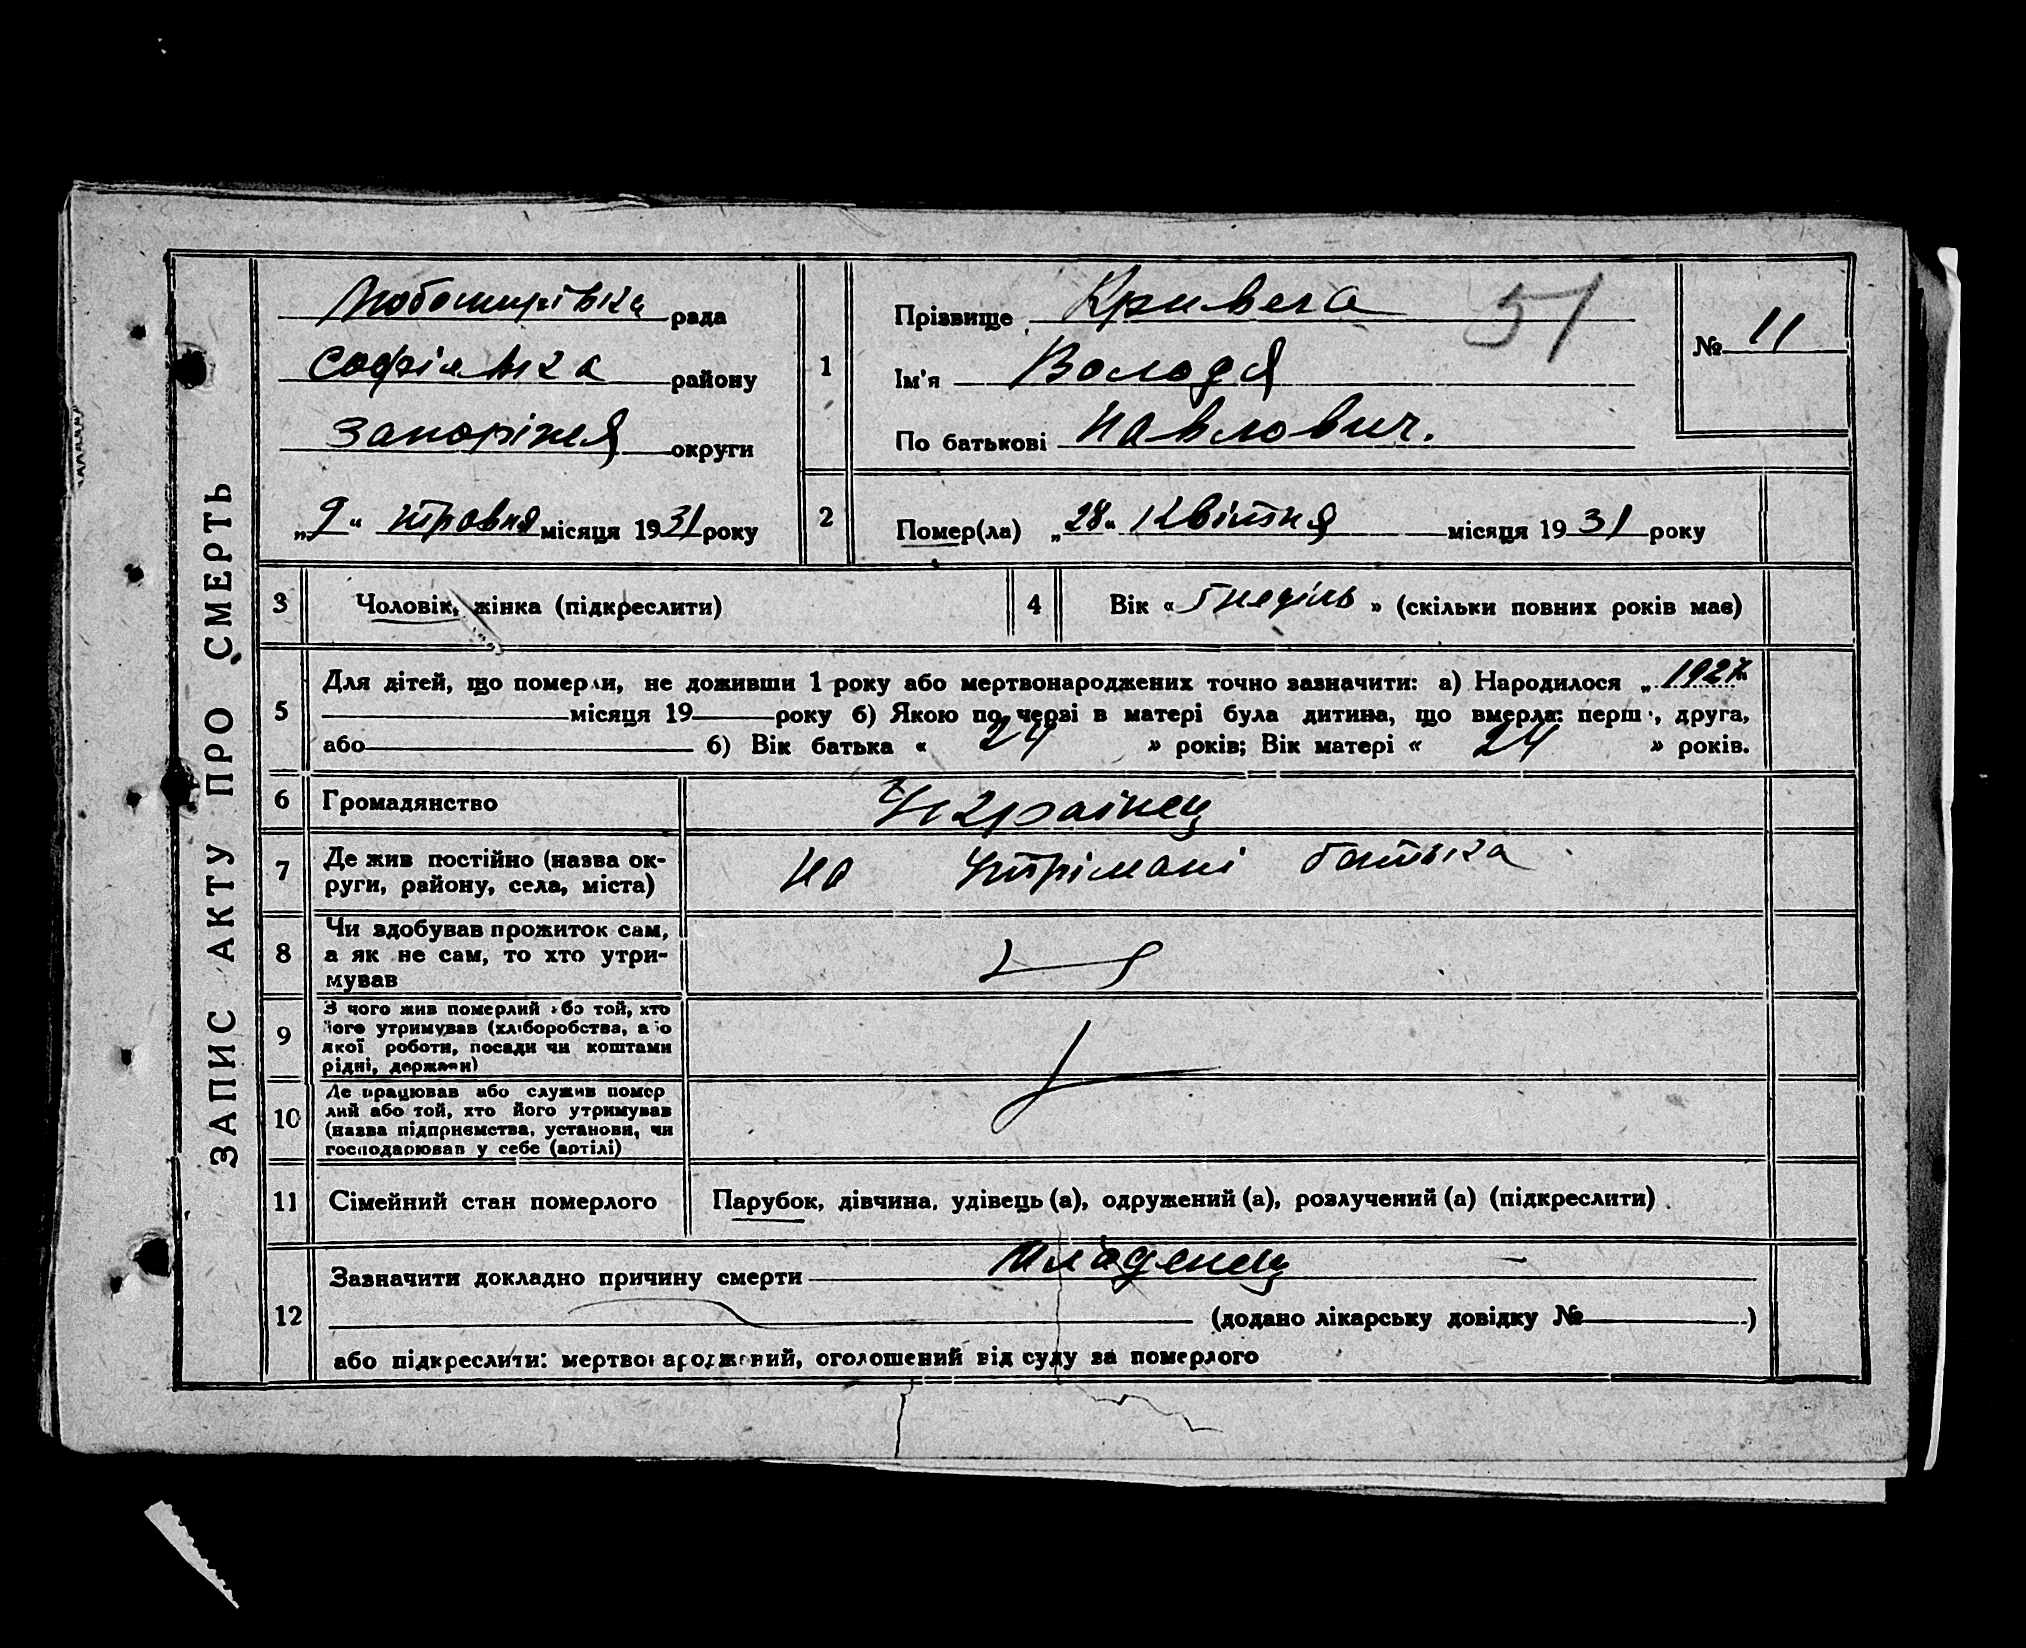 ЗАПИС АКТУ ПРО СМЕРТЬ
Любомирівка рада
Софіівка району
Запоріжся округи
„ 9 “ травня місяця 1931 року
1
Прізвище Кривега
Ім'я Володя
По батькові Павлович.
51
№ 11
2
Помер(ла) „ 28 “ Квітня місяця 1931 року
3
Чоловік, жінка (підкреслити)
4
Вік « неділь » (скільки повних років має)
5
Для дітей, що померли, не доживши 1 року або мертвонароджених точно зазначити: а) Народилося „ 1927
місяця 19 року б) Якою по черзі в матері була дитина, що вмерла: перша, друга,
або б) Вік батька « 24 » років; Вік матері « 24 » років.
6
Громадянство
Українец
7
Де жив постійно (назва ок-
руги, району, села, міста)
на утрімані батька
8
Чи здобував прожиток сам,
а як не сам, то хто утри-
мував
9
З чого жив померлий або той, хто
його утримував (хліборобства, або
якої роботи, посади чи коштами
рідні, держави)
10
Де працював або служив помер
лий або той, хто його утримував
(назва підприємства, установи, чи
господарював у себе (артілі)
11
Сімейний стан померлого
Парубок, дівчина, удівець (а), одружений (а), розлучений (а) (підкреслити)
12
Зазначити докладно причину смерти младенец
(додано лікарську довідку № )
або підкреслити: мертвонароджений, оголошений від суду за померлого